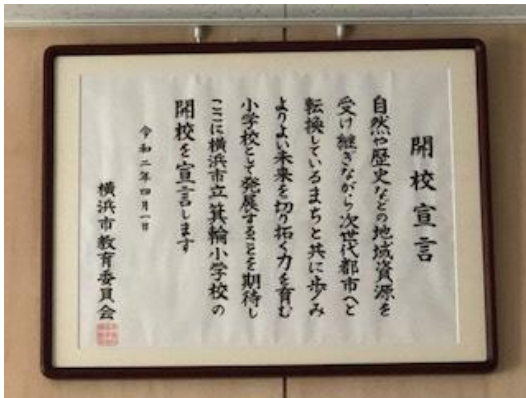 開校宣言
自然や歴史などの地域資源を
受け継ぎながら次世代都市へと
転換しているまちと共に歩み
よりよい未来を切り拓く力を育む
小学校として発展することを期待し
ここに横浜市立箕輪小学校の
開校を宣言します
令和二年四月一日
横浜市教育委員会